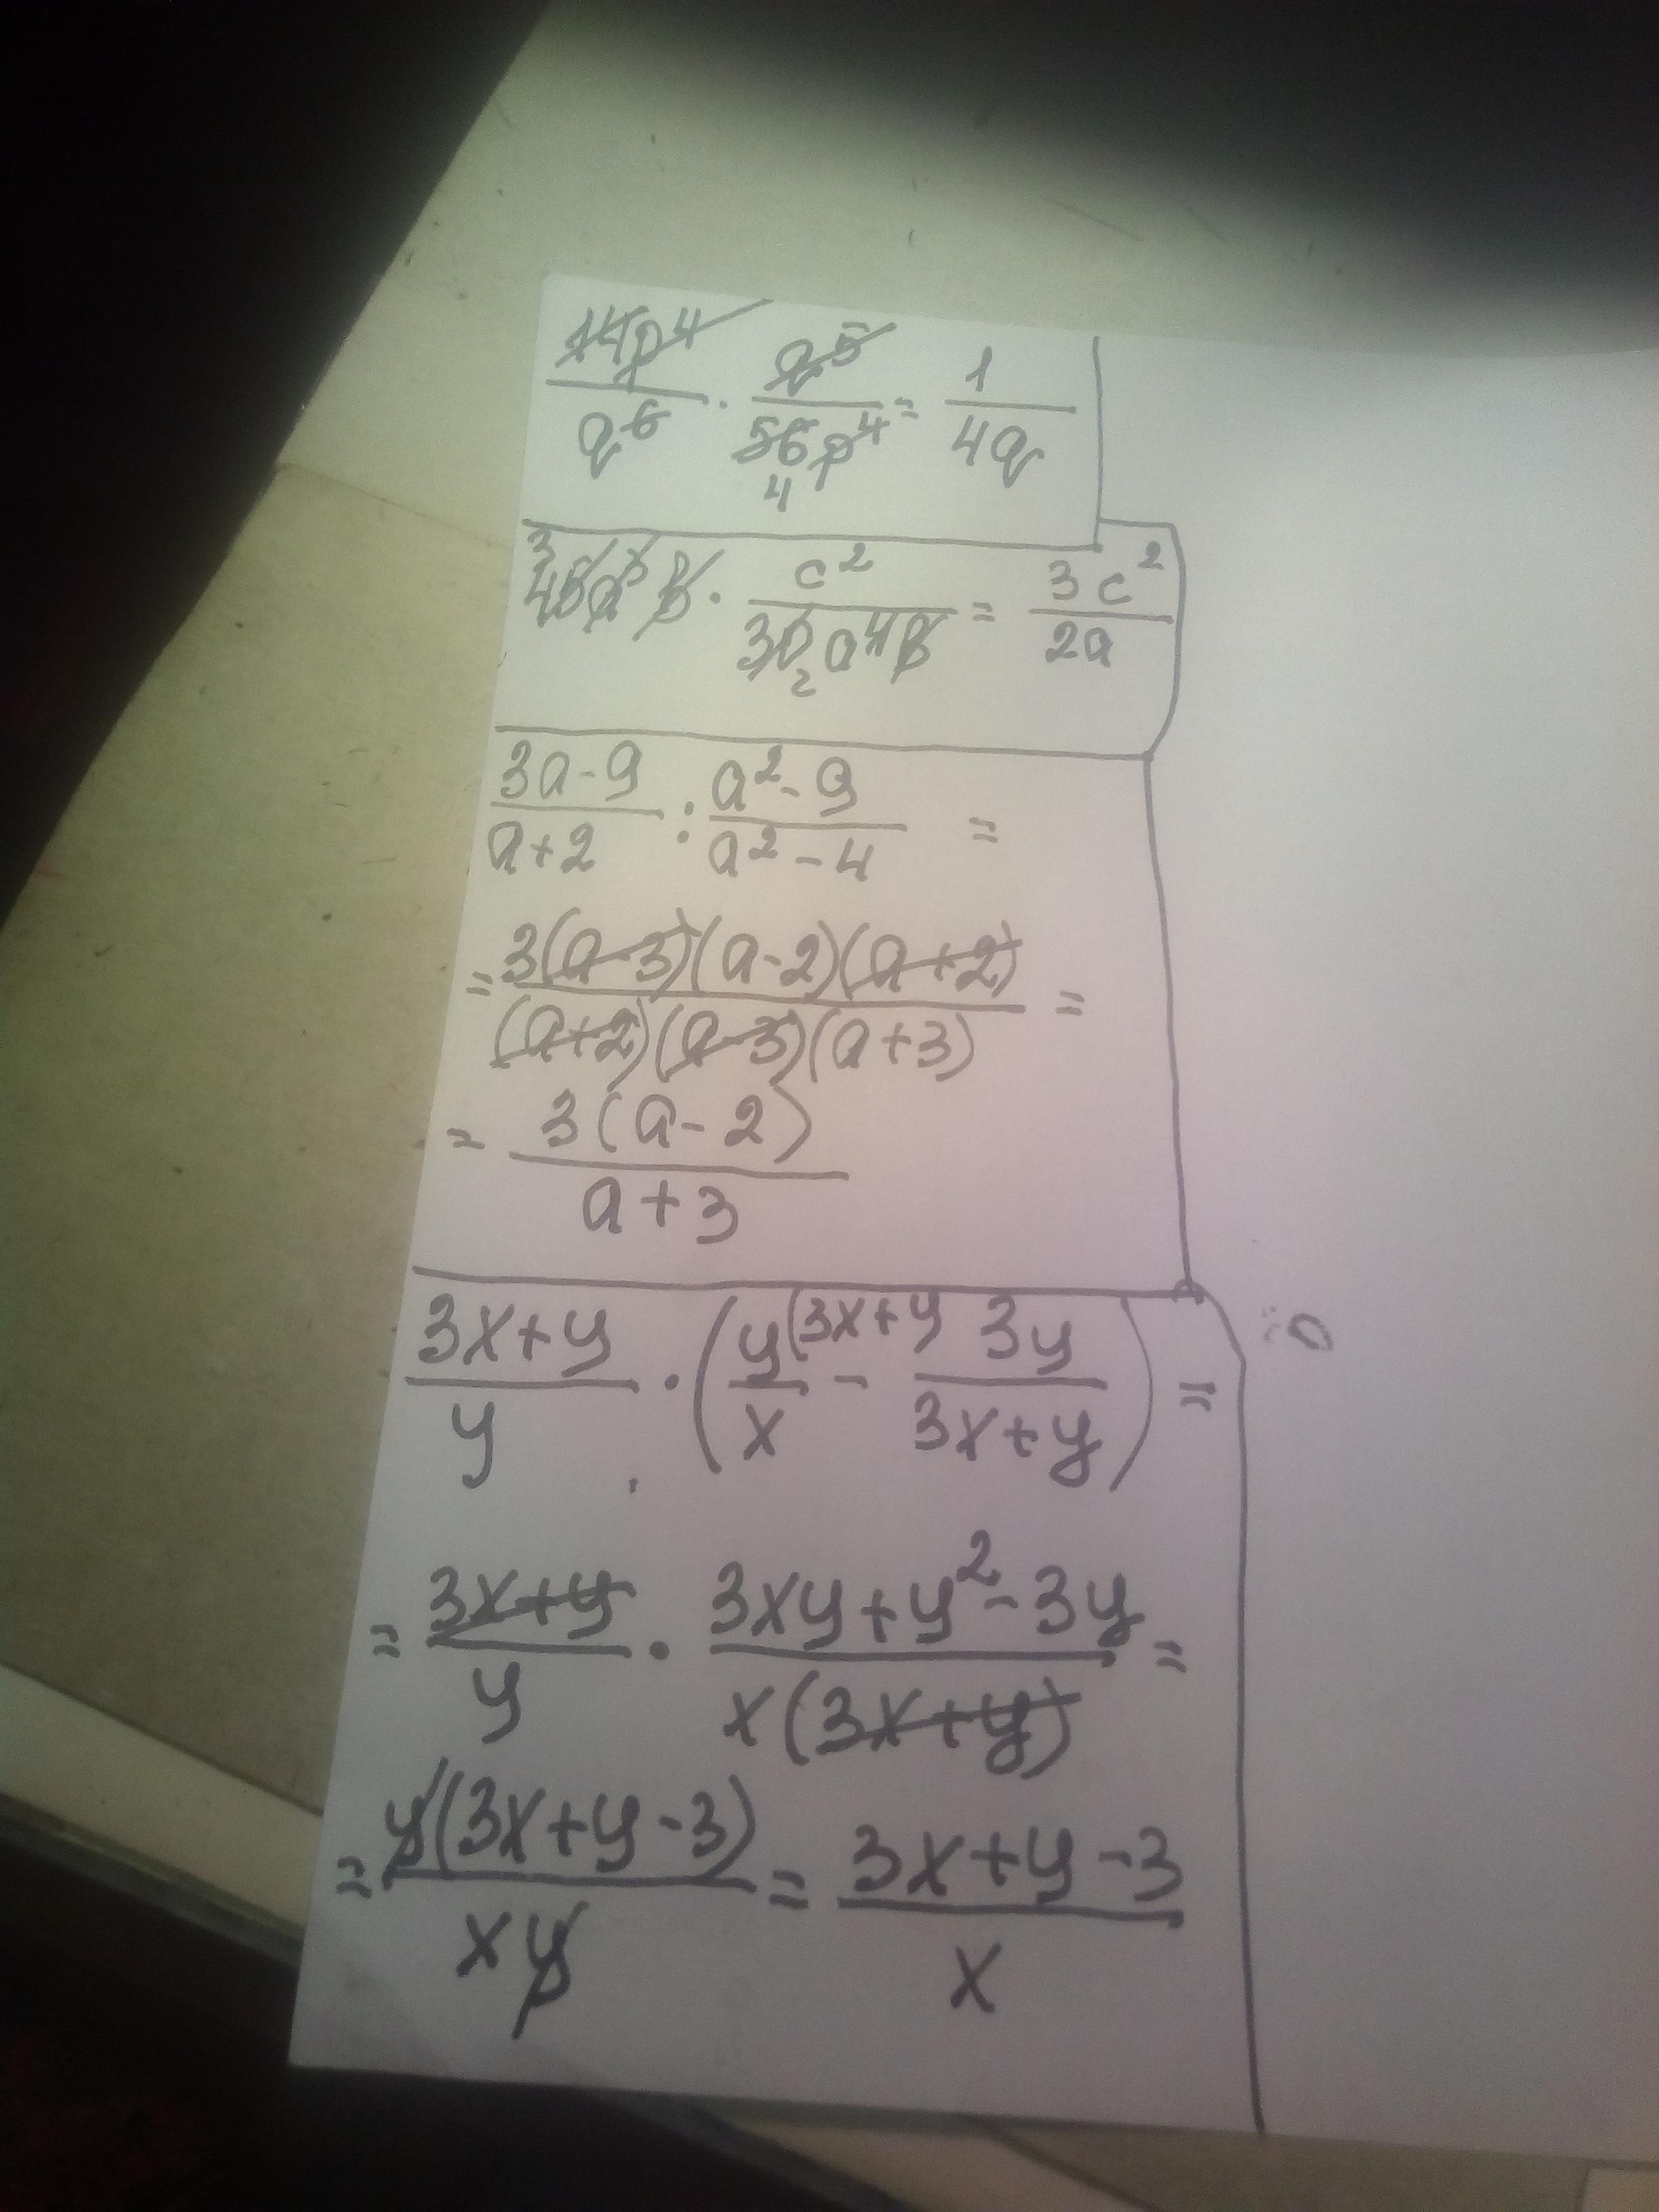 14p⁴/q⁶ · q⁵/56p⁴ = 1/4q
4
3
45a³b · c²/30a⁴b = 3c²/2a
2
3a-9/a+2 : a²-9/a²-4 =
= 3(a-3)(a-2)(a+2)/(a+2)(a-3)(a+3) =
= 3(a-2)/a+3
3x+y/y · (y(3x+y/x - 3y/3x+y) =
= 3x+y/y · 3xy+y²-3y/x(3x+y) =
= y(3x+y-3)/xy = 3x+y-3/x